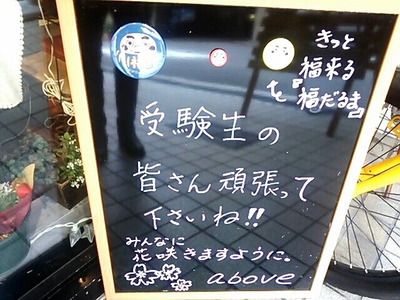 きっと
福来る
を『福だるま』
受験生の
皆さん頑張って
下さいね!!
みんなに
花咲きますように。
above